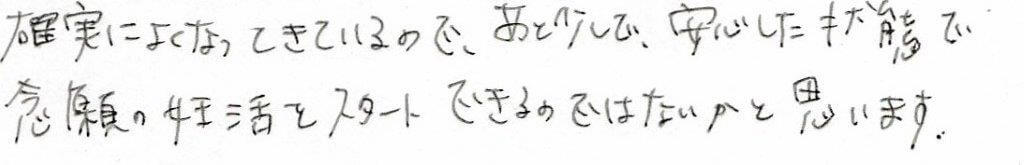 確実によくなってきているので、あと少しで、安心した状態で
念願の妊活をスタートできるのではないかと思います.